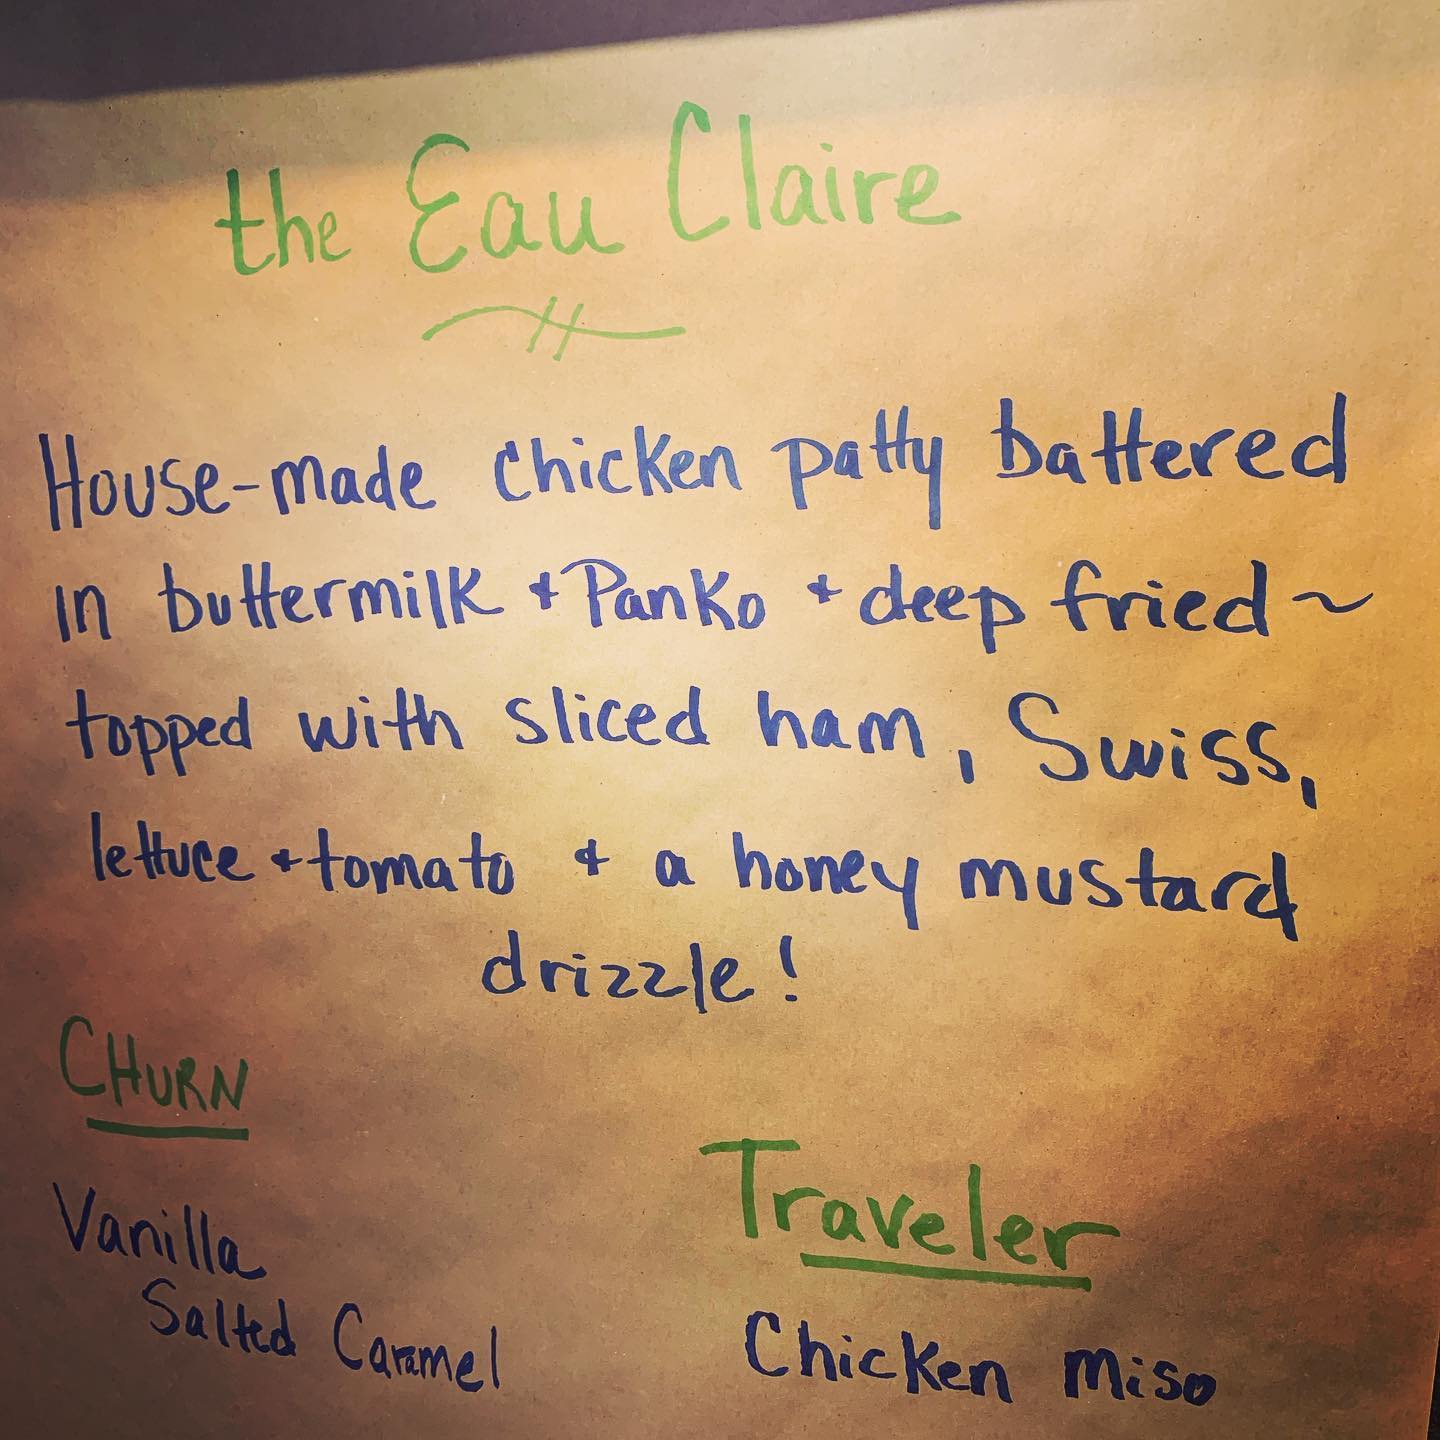 the Eau Claire
House-made chicken patty battered
in buttermilk + Panko + deep fried ~
topped with sliced ham, Swiss,
lettuce + tomato + a honey mustard
drizzle!
CHURN
Vanilla
Salted Caramel
Traveler
Chicken Miso